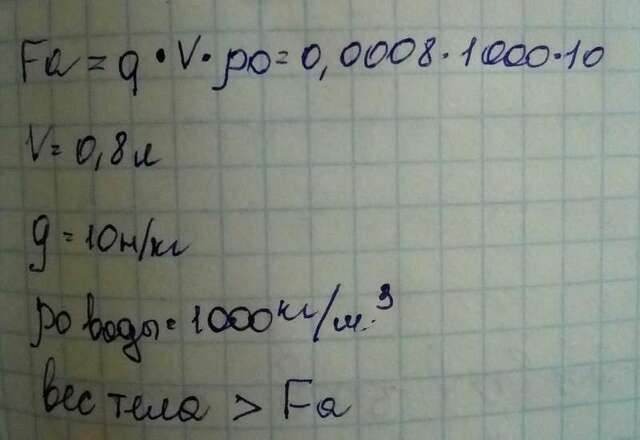 Fa = g · V · ро = 0,0008 · 1000 · 10
V = 0,8 л
g = 10 н/кг
ро воды = 1000 кг/м.³
вес тела > Fa